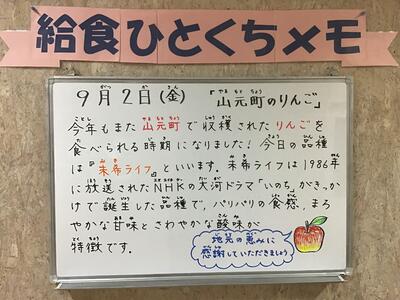 給食ひとくちメモ
9月2日(金) 「山元町のりんご」
今年もまた山元町で収穫されたりんごを
食べられる時期になりました!今日の品種
は『未希ライフ』といいます。未希ライフは1986年
に放送されたNHKの大河ドラマ「いのち」がきっか
けで誕生した品種で、パリパリの食感、まろ
やかな甘味とさわやかな酸味が
特徴です。
地元の恵みに
感謝していただきましょう